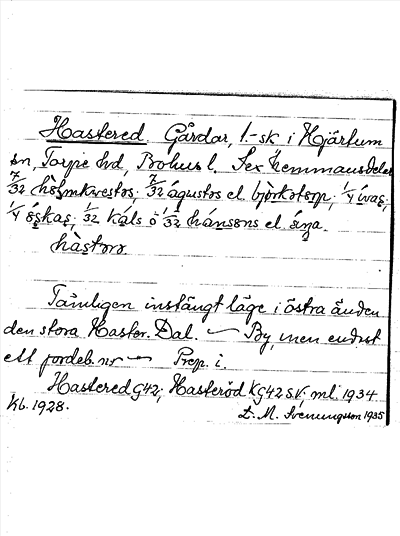 Hastered. Gårdar, 1.-sk, i Hjärtum
sn, Torpe hd, Bohus l. Sex hemmansdelar
7/32 hòlmkwestəs; 7/32 águstəs el. bjòrkətorp; 1/4 ívas;
1/4 óskas; 1/32 káls ö 1/32 hánsəns el.
hàstərə.
Tämligen instängt läge i östra änden
den stora Haster. Dal. — By, men endast
ett jordeb. nr — Prep. i.
Hastered G42; Hasteröd KG42 S.V. ml. 1934
Kb. 1928.
L. M. Svenungsson 1935